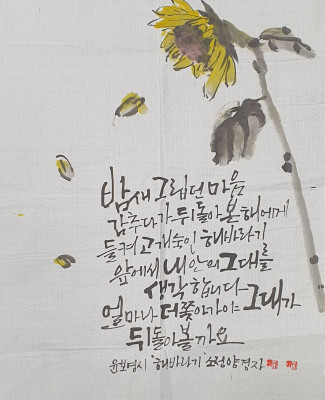 밤새 그립던 마음
감추다가 뒤돌아 본 해에게
들켜 고개숙인 해바라기
앞에서 내 안의 그대를
생각합니다
얼마나 더 쫓아가야 그대가
뒤돌아볼까요
윤보영시 "해바라기" 소정 양경자